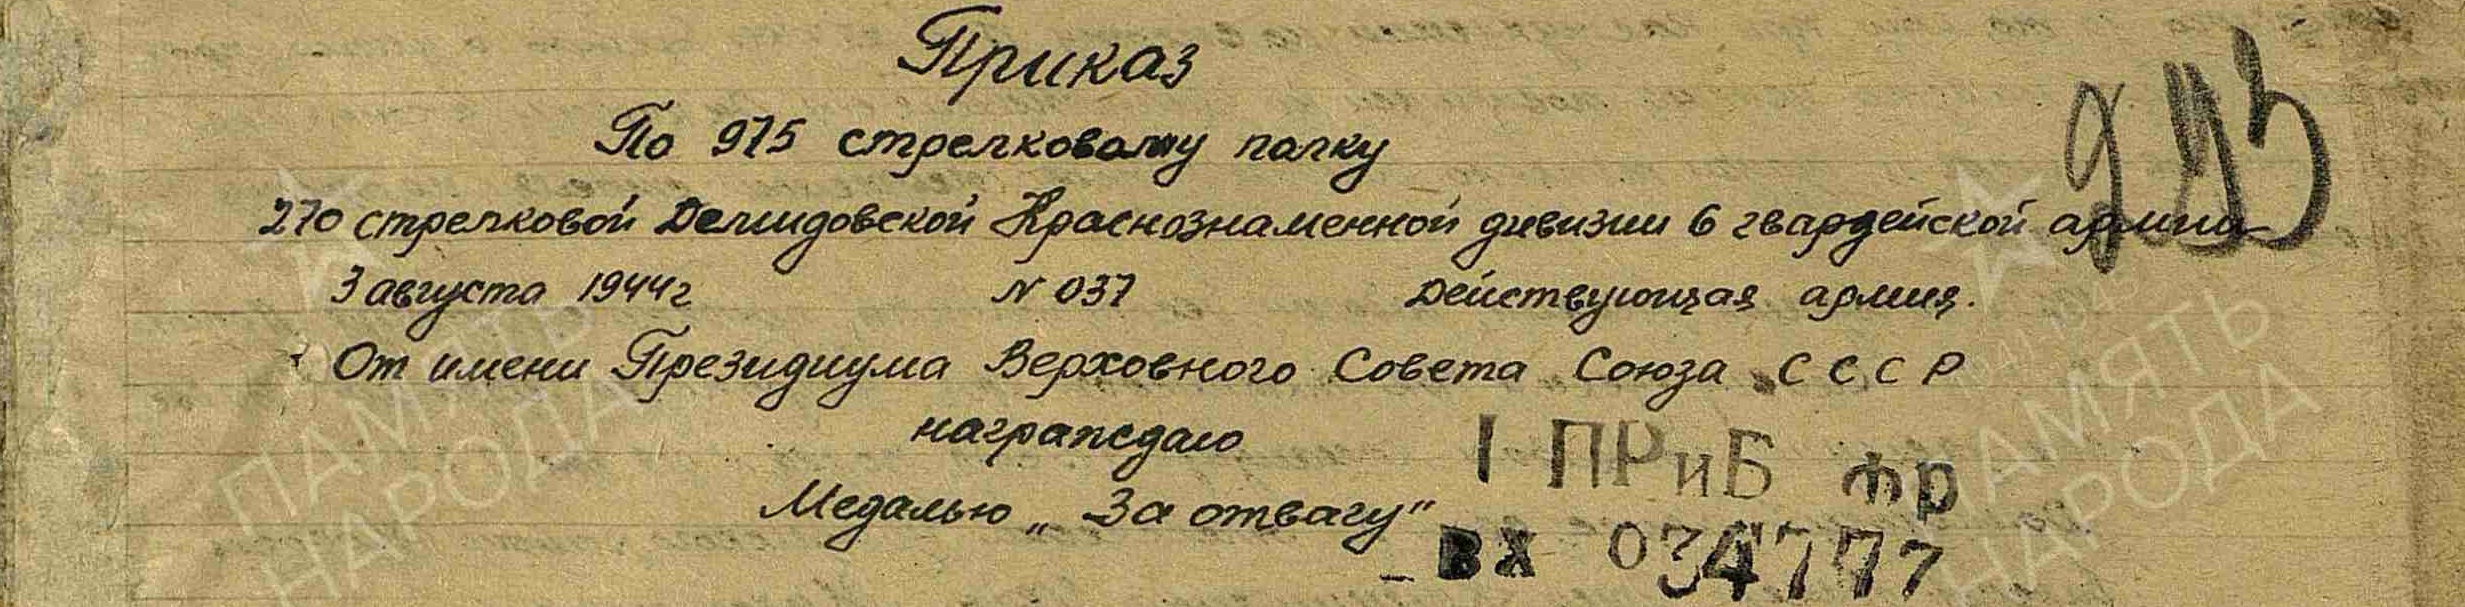 Приказ
По 975 стрелковому полку
270 стрелковой Демидовской Краснознаменной дивизии 6 гвардейской армии
3 августа 1944г N 037 Действующая армия.
От имени Президиума Верховного Совета Союза С С С Р
награждаю
Медалью „За отвагу“
1 ПРиБ фр
ВХ 034777
ПАМЯТЬ
НАРОДА
ПАМЯТЬ
НАРОДА